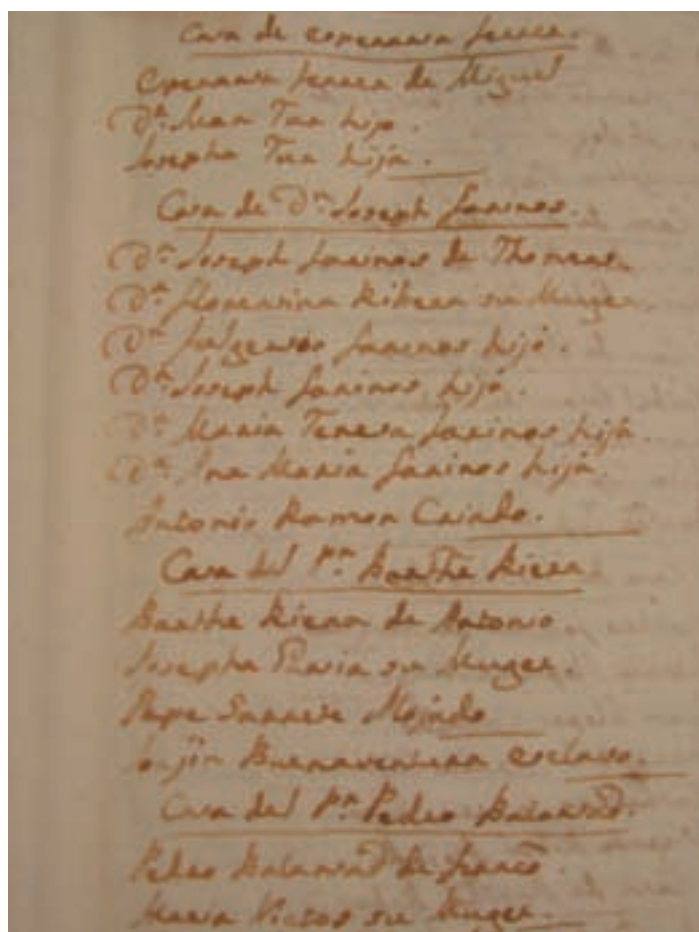 Casa de Esperansa ferrer.
Esperansa ferrer de Miguel
Dn. Juan Tur hijo.
Josepha Tur hija.
Casa de Dn. Joseph Sarinos.
Dn. Joseph Sarinos de Thomas
Da. Florentina Ribera su Muger
Dn. fulgencio Sarinos hijo.
Dn. Joseph Sarinos hijo.
Da. Maria Teresa Sarinos hija.
Da. Ana Maria Sarinos hija.
Antonio Ramon Criado.
Casa del Pn. Barthe. Riera
Barthe Riera de Antonio.
Josepha su Muger.
Pepe
Buenaventura esclavo.
Casa del Pn. Pedro
Pedro de franco.
Maria su Muger.